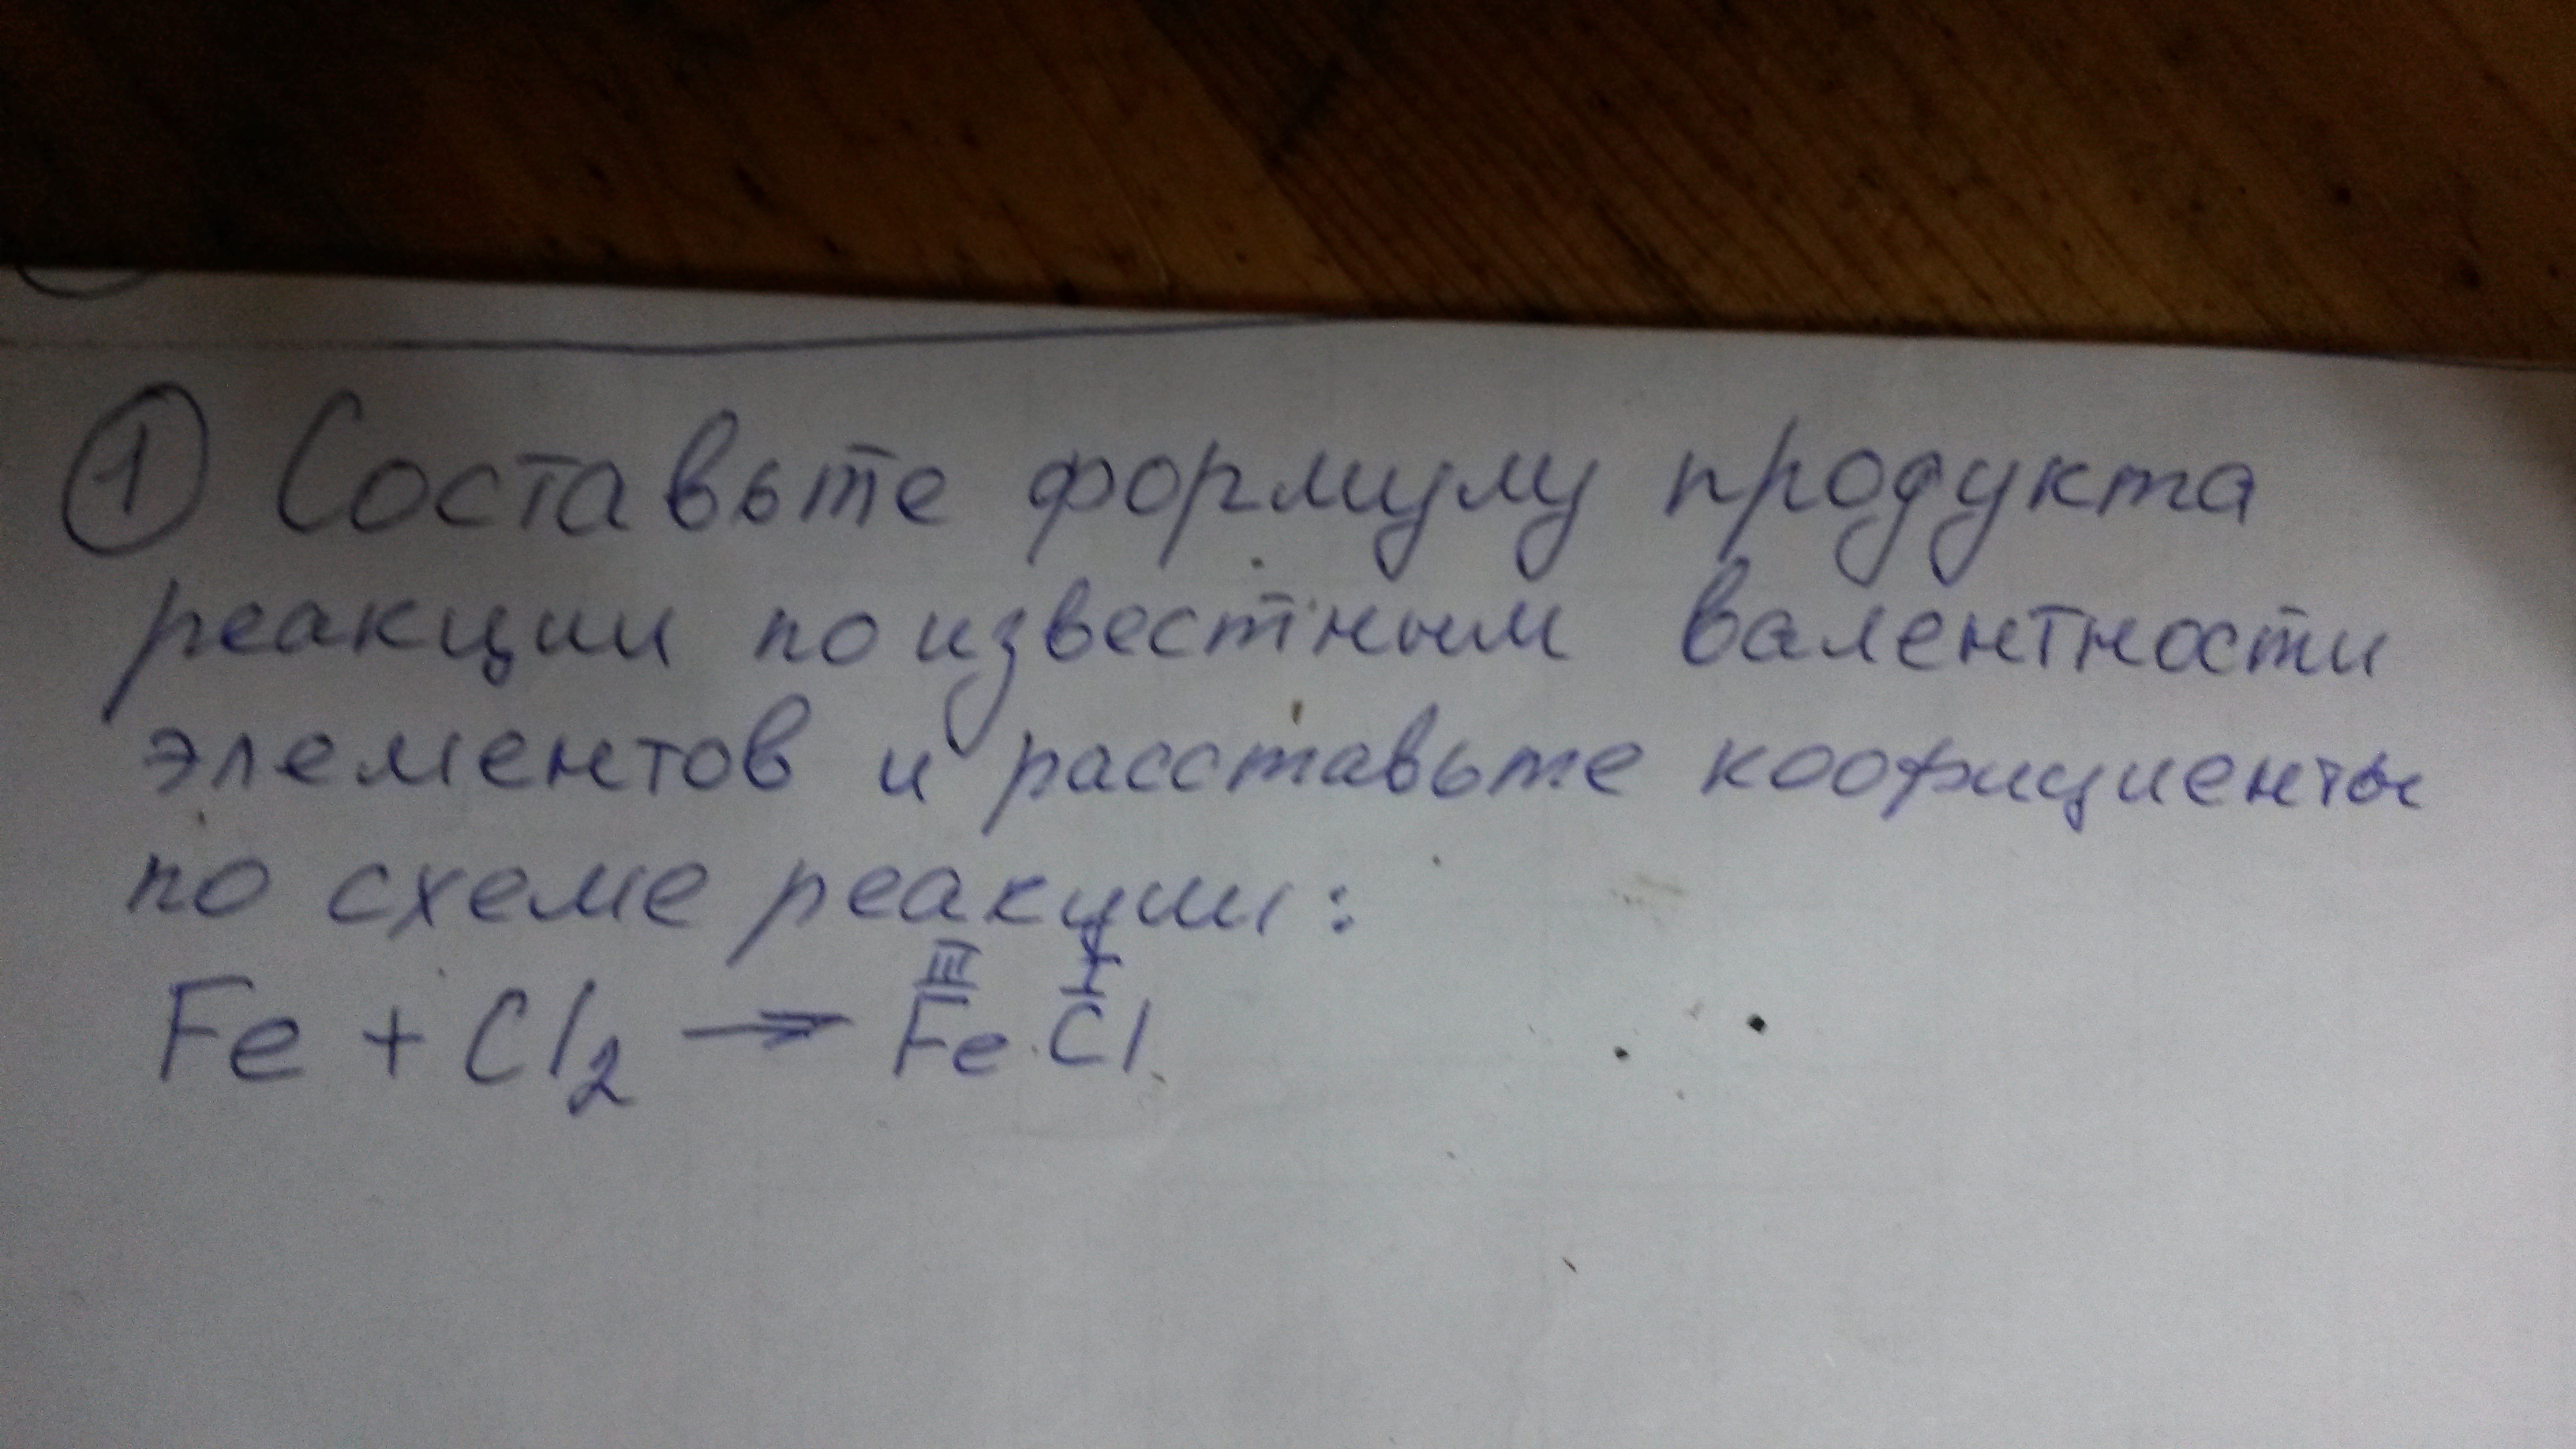 ① Составьте формулу продукта
реакции по известным валентности
элементов и расставьте коофициенты
по схеме реакции:
III I
Fe + Cl₂ → Fe Cl